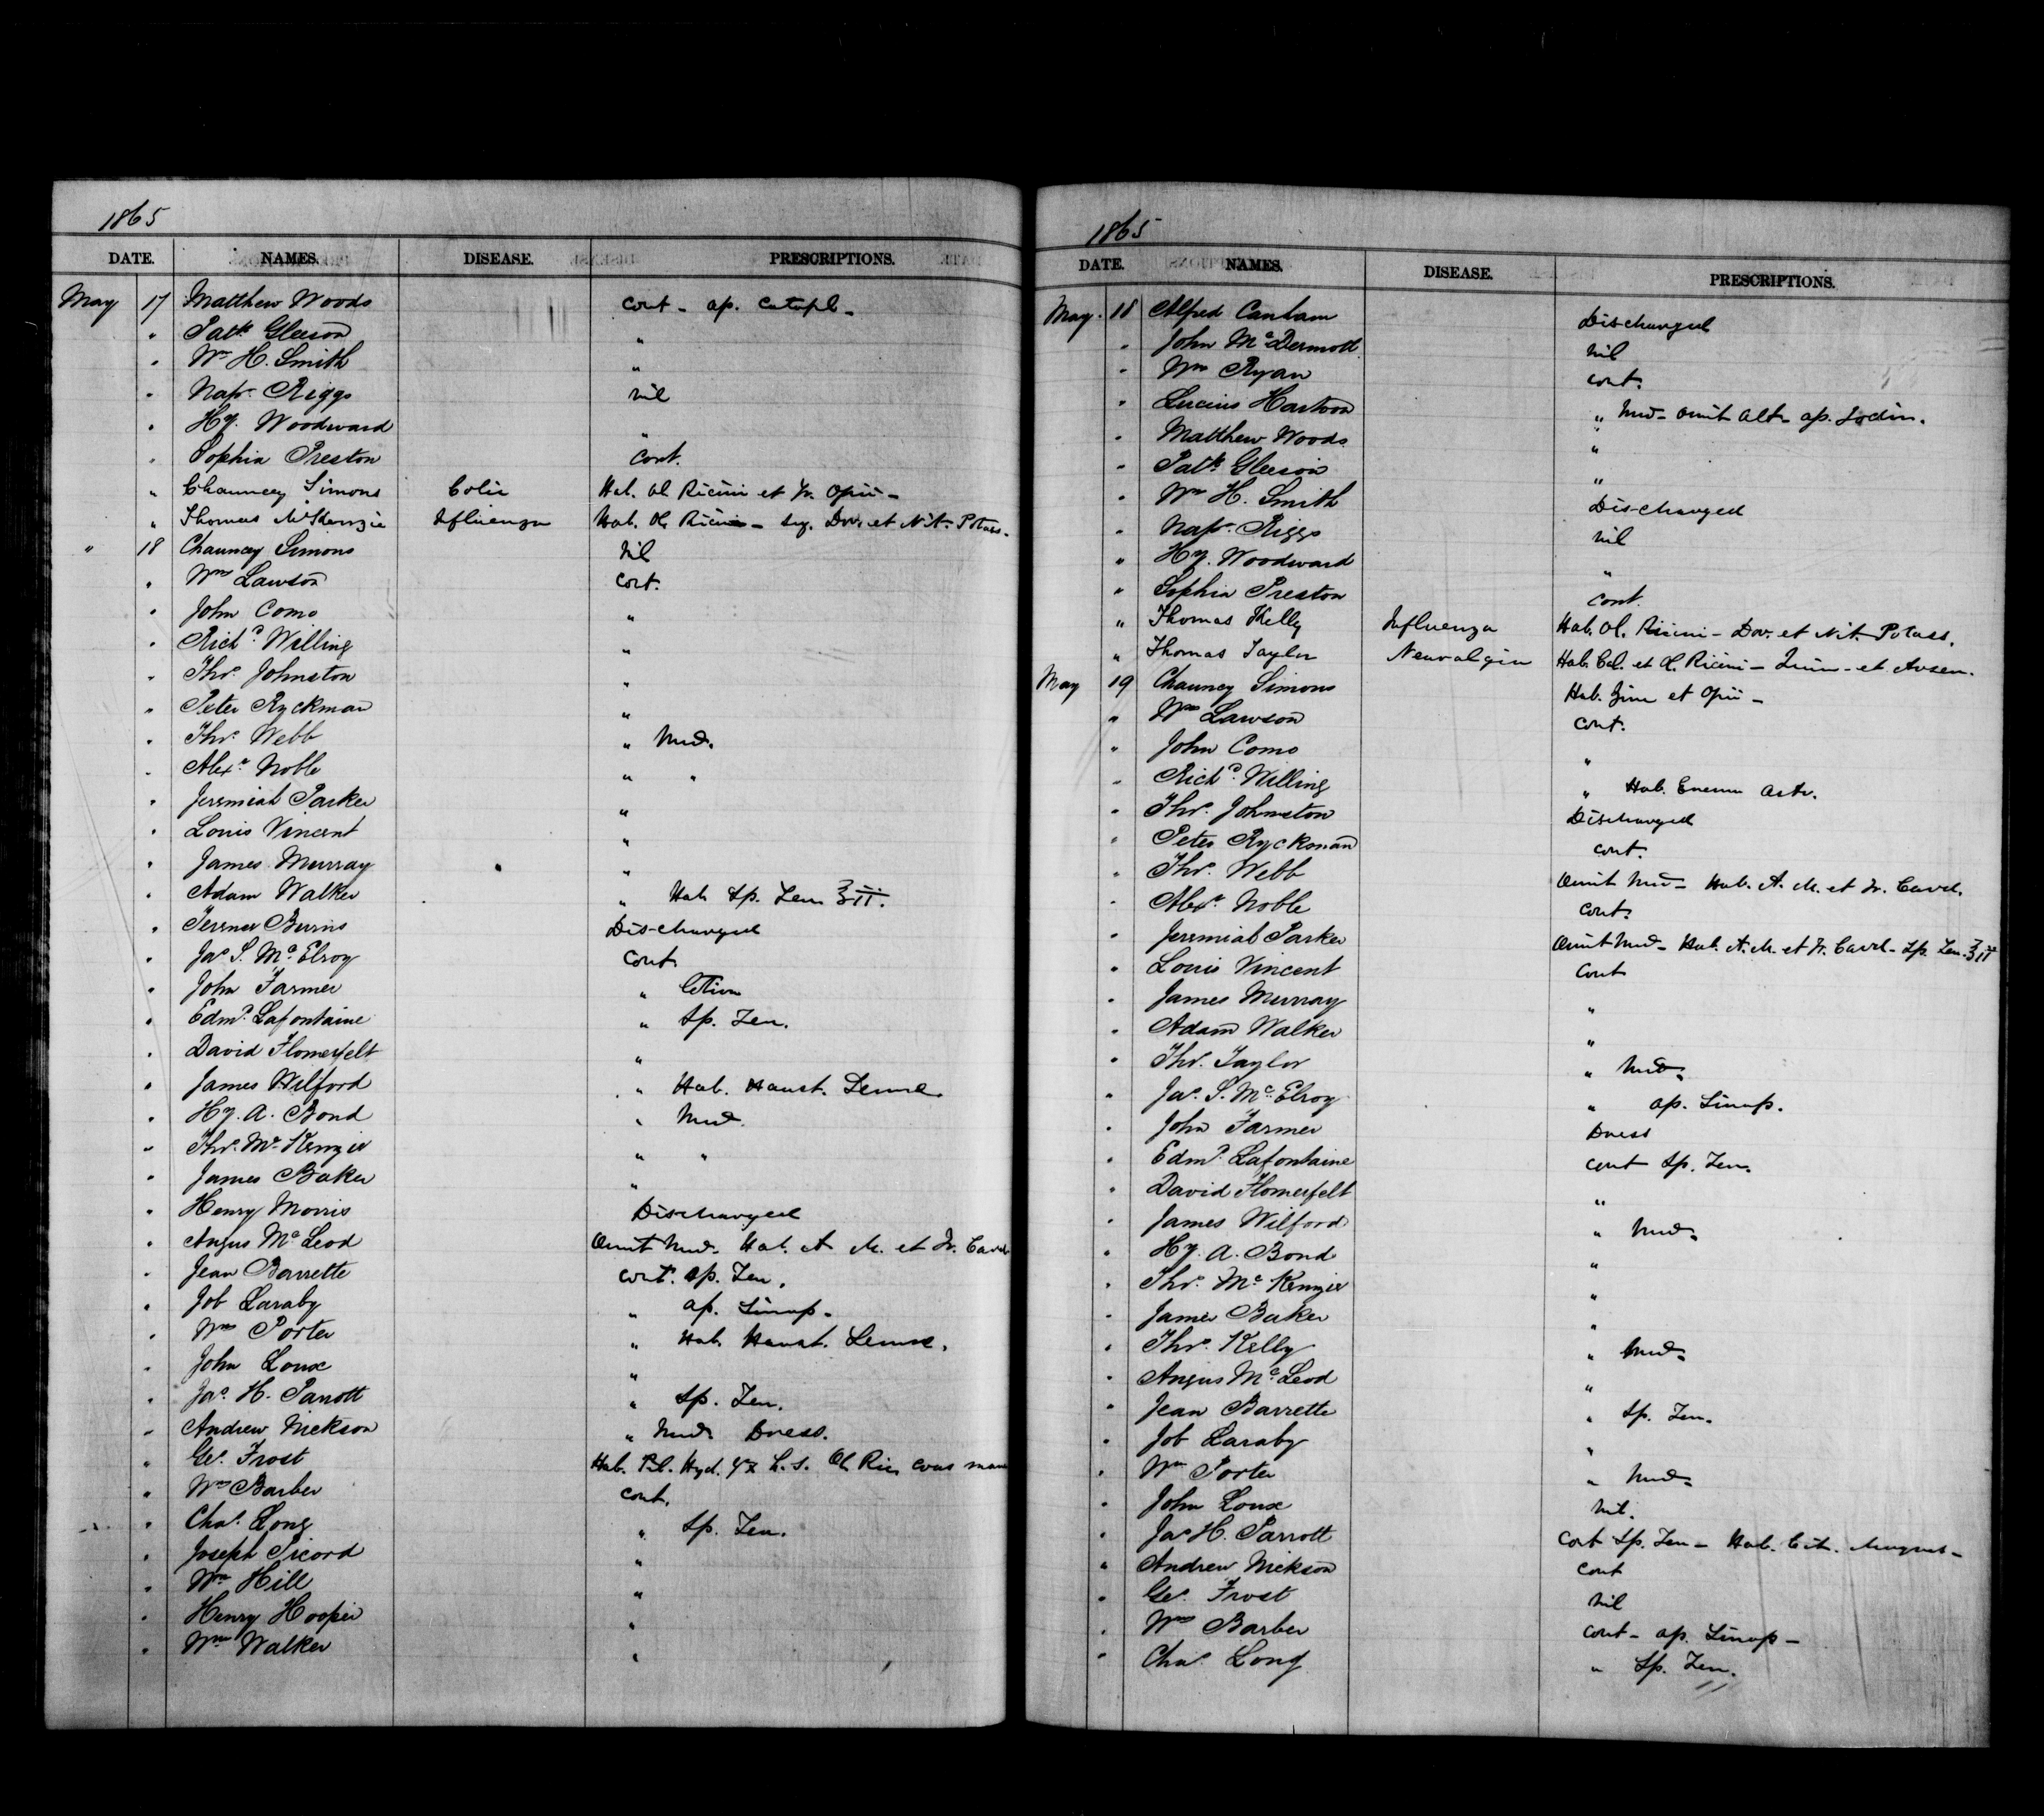 1865
DATE. NAMES. DISEASE. PRESCRIPTIONS.
May 17 Matthew Woods cont - ap. catapl -
" Patk Gleeson "
" Wm H. Smith "
" Napn Riggs nil
" Hy. Woodward "
" Sophia Preston cont.
" Chauncey Simons Colic Hab. Ol Ricini et Tr. Opii -
" Thomas McKenzie Influenza Hab. Ol. Ricini - Dov. et Nit. Potass.
" 18 Chauncey Simons nil
" Wm Lawson cont.
" John Como "
" Richd Willing "
" Thos Johnston "
" Peter Ryckman "
" Thos Webb " Med.
" Alexr Noble " "
" Jeremiah Parker "
" Louis Vincent "
" James Murray "
" Adam Walker " Hab Sp. Ten ʒii.
" Terence Burns Discharged
" Jas S. McElroy cont.
" John Farmer " lotion
" Edmd Lafontaine " Sp. Ten.
" David Flomerfelt "
" James Wilford " Hab. Haust. Sennæ.
" Hy. A. Bond " Med.
" Thos McKenzie " "
" James Baker "
" Henry Morris Discharged
" Angus McLeod Omit Med. Hab. A. M. et Tr. Card.
" Jean Barrette cont. Sp. Ten.
" Job Laraby " ap. Sinap -
" Wm Porter " Hab. Haust. Sennæ.
" John Loux "
" Jas H. Parrott " Sp. Ten.
" Andrew Nickson " Med. Dress.
" Geo. Frost Hab. Pil. Hyd. h. s. Ol. Ric. cras mane
" Wm Barber cont.
" Chas Long " Sp. Ten.
" Joseph Picord "
" Wm Hill "
" Henry Hooper "
" Wm Walker "
1865
DATE. NAMES. DISEASE. PRESCRIPTIONS.
May 18 Alfred Canham Discharged
" John McDermott nil
" Wm Ryan cont.
" Lucius Hartson " Med - omit Alt - ap. Iodin.
" Matthew Woods "
" Patk Gleeson "
" Wm H. Smith Discharged
" Napn Riggs nil
" Hy. Woodward "
" Sophia Preston cont.
" Thomas Kelly Influenza Hab. Ol. Ricini - Dov. et Nit. Potass.
" Thomas Taylor Neuralgia Hab. Cal. et Ol. Ricini - Quin - et Arsen.
May 19 Chauncey Simons Hab. et Opii -
" Wm Lawson cont.
" John Como "
" Richd Willing " Hab. Enema
" Thos Johnston Discharged
" Peter Ryckman cont.
" Thos Webb Omit Med - Hab. A. M. et Tr. Card.
" Alexr Noble cont.
" Jeremiah Parker Omit Med - Hab. A. M. et Tr. Card - Sp. Ten. ʒii
" Louis Vincent cont
" James Murray "
" Adam Walker "
" Thos Taylor " Med.
" Jas S. McElroy " ap. Sinap.
" John Farmer Dress
" Edmd Lafontaine cont Sp. Ten.
" David Flomerfelt "
" James Wilford " Med.
" Hy. A. Bond "
" Thos McKenzie "
" James Baker "
" Thos Kelly " Med.
" Angus McLeod "
" Jean Barrette " Sp. Ten.
" Job Laraby "
" Wm Porter " Med.
" John Loux nil.
" Jas H. Parrott cont Sp. Ten - Hab. Cit. Magnes -
" Andrew Nickson cont
" Geo. Frost nil
" Wm Barber cont - ap. Sinap -
" Chas Long " Sp. Ten.